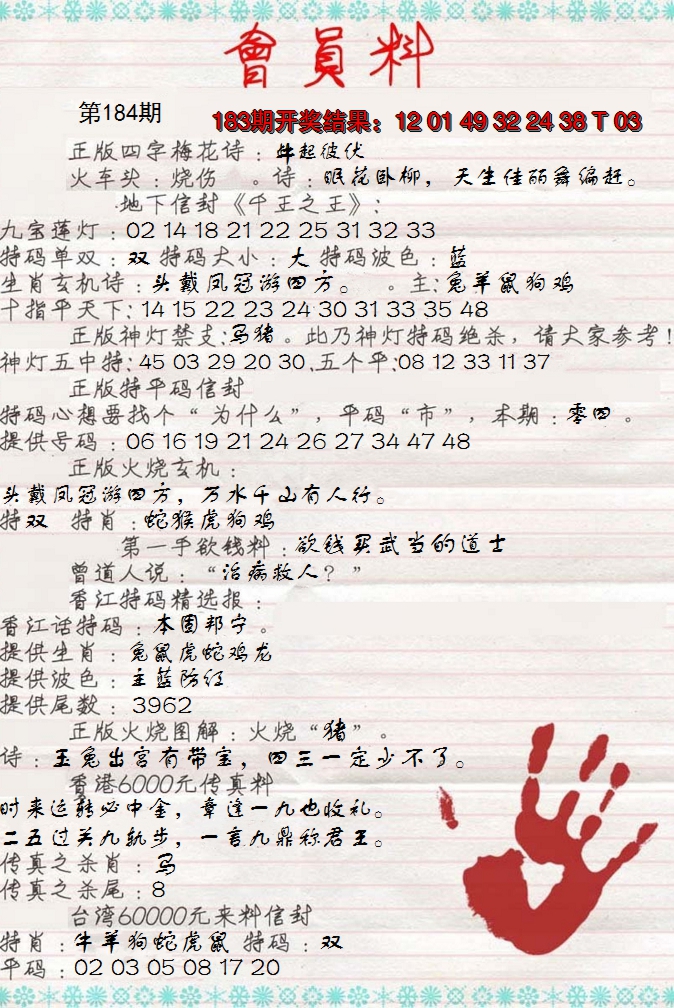 會員料
第184期
183期开奖结果：12 01 49 32 24 38 T 03
正版四字梅花诗：此起彼伏
火车头：烧伤 。诗：眠花卧柳，天生佳丽舞编赶。
地下信封《千王之王》：
九宝莲灯：02 14 18 21 22 25 31 32 33
特码单双：双 特码大小：大 特码波色：蓝
生肖玄机诗：头戴凤冠游四方。 。主：兔羊鼠狗鸡
十指平天下：14 15 22 23 24 30 31 33 35 48
正版神灯禁支：马猪。此乃神灯特码绝杀，请大家参考！
神灯五中特：45 03 29 20 30.五个平：08 12 33 11 37
正版特平码信封
特码心想要找个“为什么”，平码“市”，本期：零四。
提供号码：06 16 19 21 24 26 27 34 47 48
正版火烧玄机：
头戴凤冠游四方，万水千山有人行。
特双 特肖：蛇猴虎狗鸡
第一手欲钱料：欲钱买武当的道士
曾道人说：“治病救人？”
香江特码精选报：
香江话特码：本固邦宁。
提供生肖：兔鼠虎蛇鸡龙
提供波色：主蓝防红
提供尾数：3962
正版火烧图解：火烧“猪”。
诗：玉兔出宫有带宝，四三一定少不了。
香港6000元传真料
时来运转必中金，章逢一九也收礼。
二五过关九轨步，一言九鼎称君王。
传真之杀肖：马
传真之杀尾：8
台湾60000元来料信封
特肖：牛羊狗蛇虎鼠 特码：双
平码：02 03 05 08 17 20